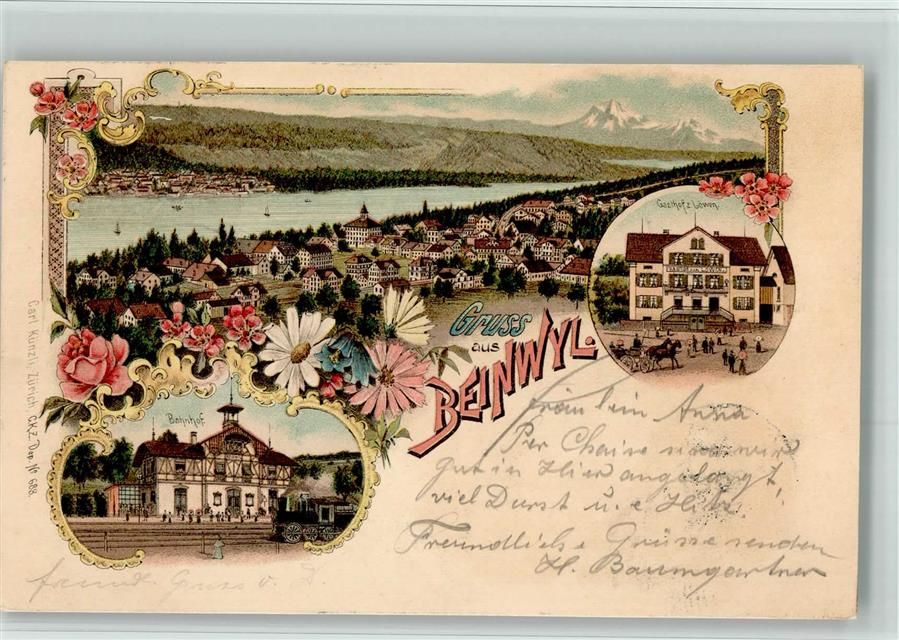 Gasthof z. Löwen.
GASTHOF ZUM LÖWEN
Gruss
aus
BEINWYL.
Bahnhof.
Carl Künzli, Zürich, C.K.Z. Dep. № 688.
Fräulein Anna
Per Chaise sind wir
gut in Hier angelangt,
viel Durst u.
Freundliche Grüsse senden
H. Baumgartner
freundl. Gruss v.